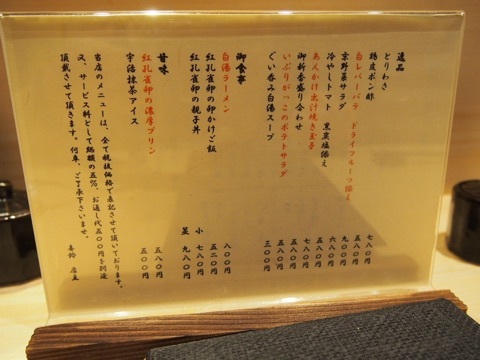 逸品
とりわさ 七八〇円
鶏皮ポン酢 五八〇円
白レバーパテ ドライフルーツ添え 九〇〇円
京野菜サラダ 六八〇円
冷やしトマト 黒藻塩添え 五八〇円
あんかけ出汁焼き玉子 七八〇円
御新香盛り合わせ 五八〇円
いぶりがっこのポテトサラダ 五八〇円
ぐい呑み白湯スープ 三〇〇円
御食事
白湯ラーメン 八〇〇円
紅孔雀卵の卵かけご飯 五二〇円
紅孔雀卵の親子丼 小 七八〇円
並 九八〇円
甘味
紅孔雀卵の濃厚プリン 五八〇円
宇治抹茶アイス 五〇〇円
当店のメニューは、全て税抜価格で表記させて頂いております。
又、サービス料として総額の五%、お通し代五〇〇円を別途
頂戴させて頂きます。何卒、ご了承下さいませ。
喜鈴 店主